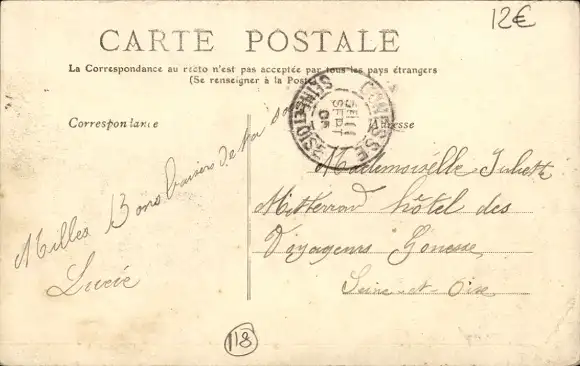 12€
CARTE POSTALE
La Correspondance au recto n'est pas acceptée par tous les pays étrangers
(Se renseigner à la Poste)
Correspondance
Adresse
Milles Bons baisers de ta
Lucie
GONESSE
SEINE-ET-OISE
11
SEPT
05
Mademoiselle Juliette
Mitterrand hôtel des
Voyageurs Gonesse
Seine-et-Oise
18